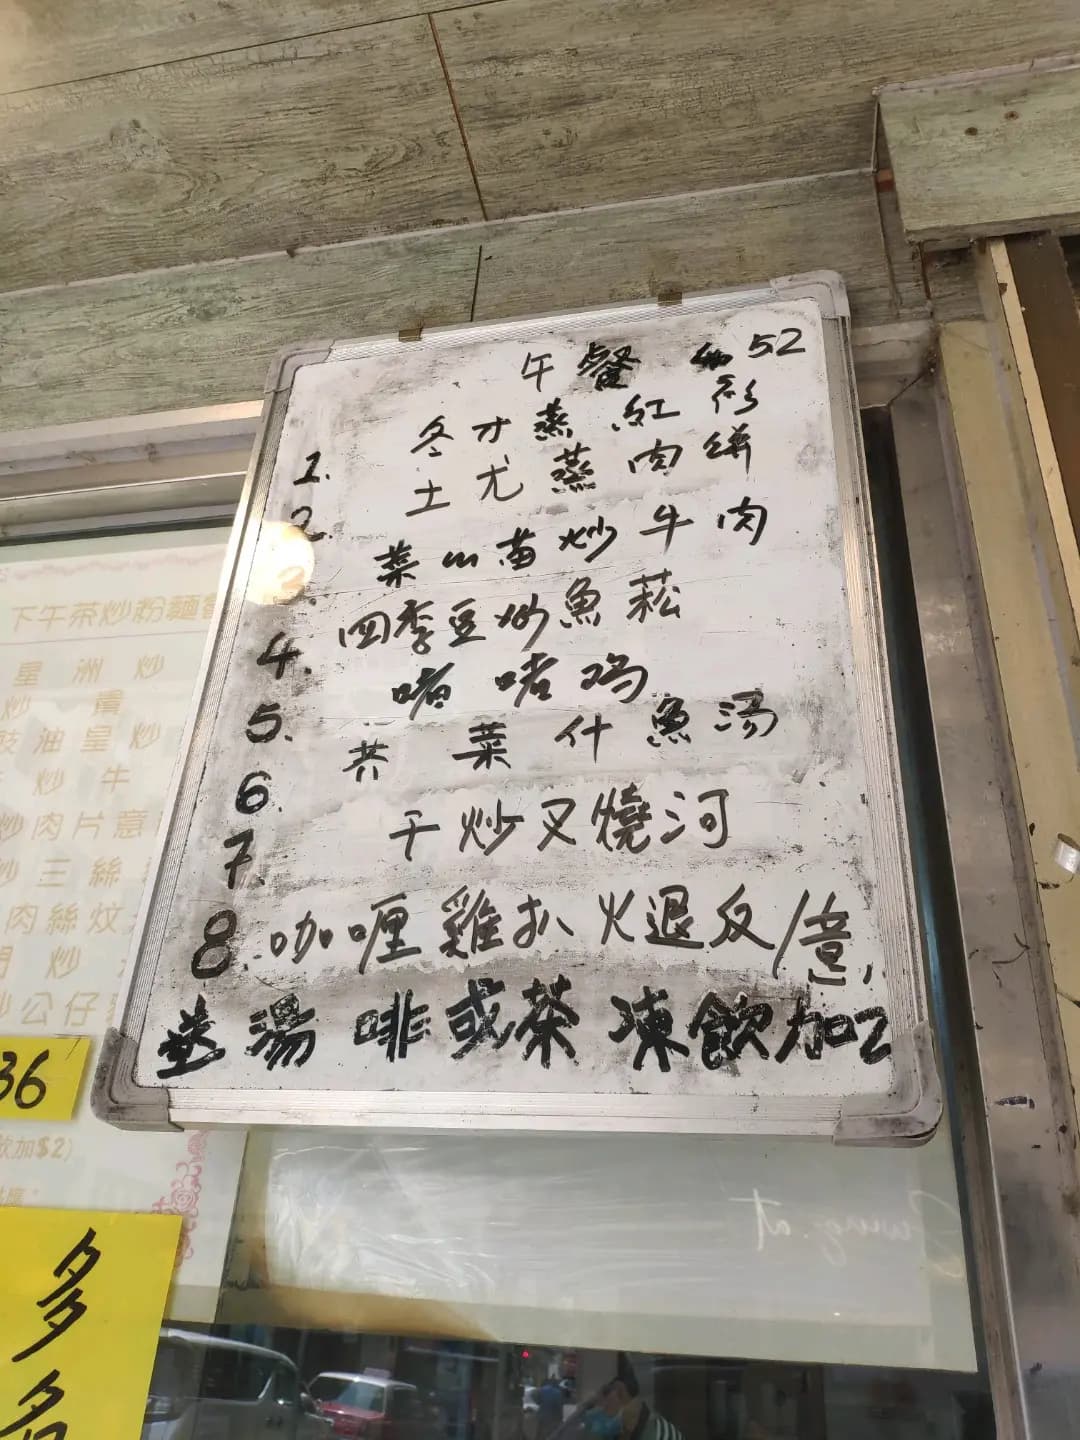 午餐 52
1. 冬才蒸紅衫
2. 土尤蒸肉餅
3. 菜心苗炒牛肉
4. 四季豆炒魚菘
5. 啫啫鸡
6. 芥菜什魚湯
7. 干炒叉燒河
8. 咖喱雞扒火退反/意
湯 啡或茶 凍飲加2
下午茶炒粉麵
星洲炒
炒貴
豉油皇炒
炒牛
炒肉片意
炒三絲
肉絲炆
炒
炒公仔
36
飲加$2)
多